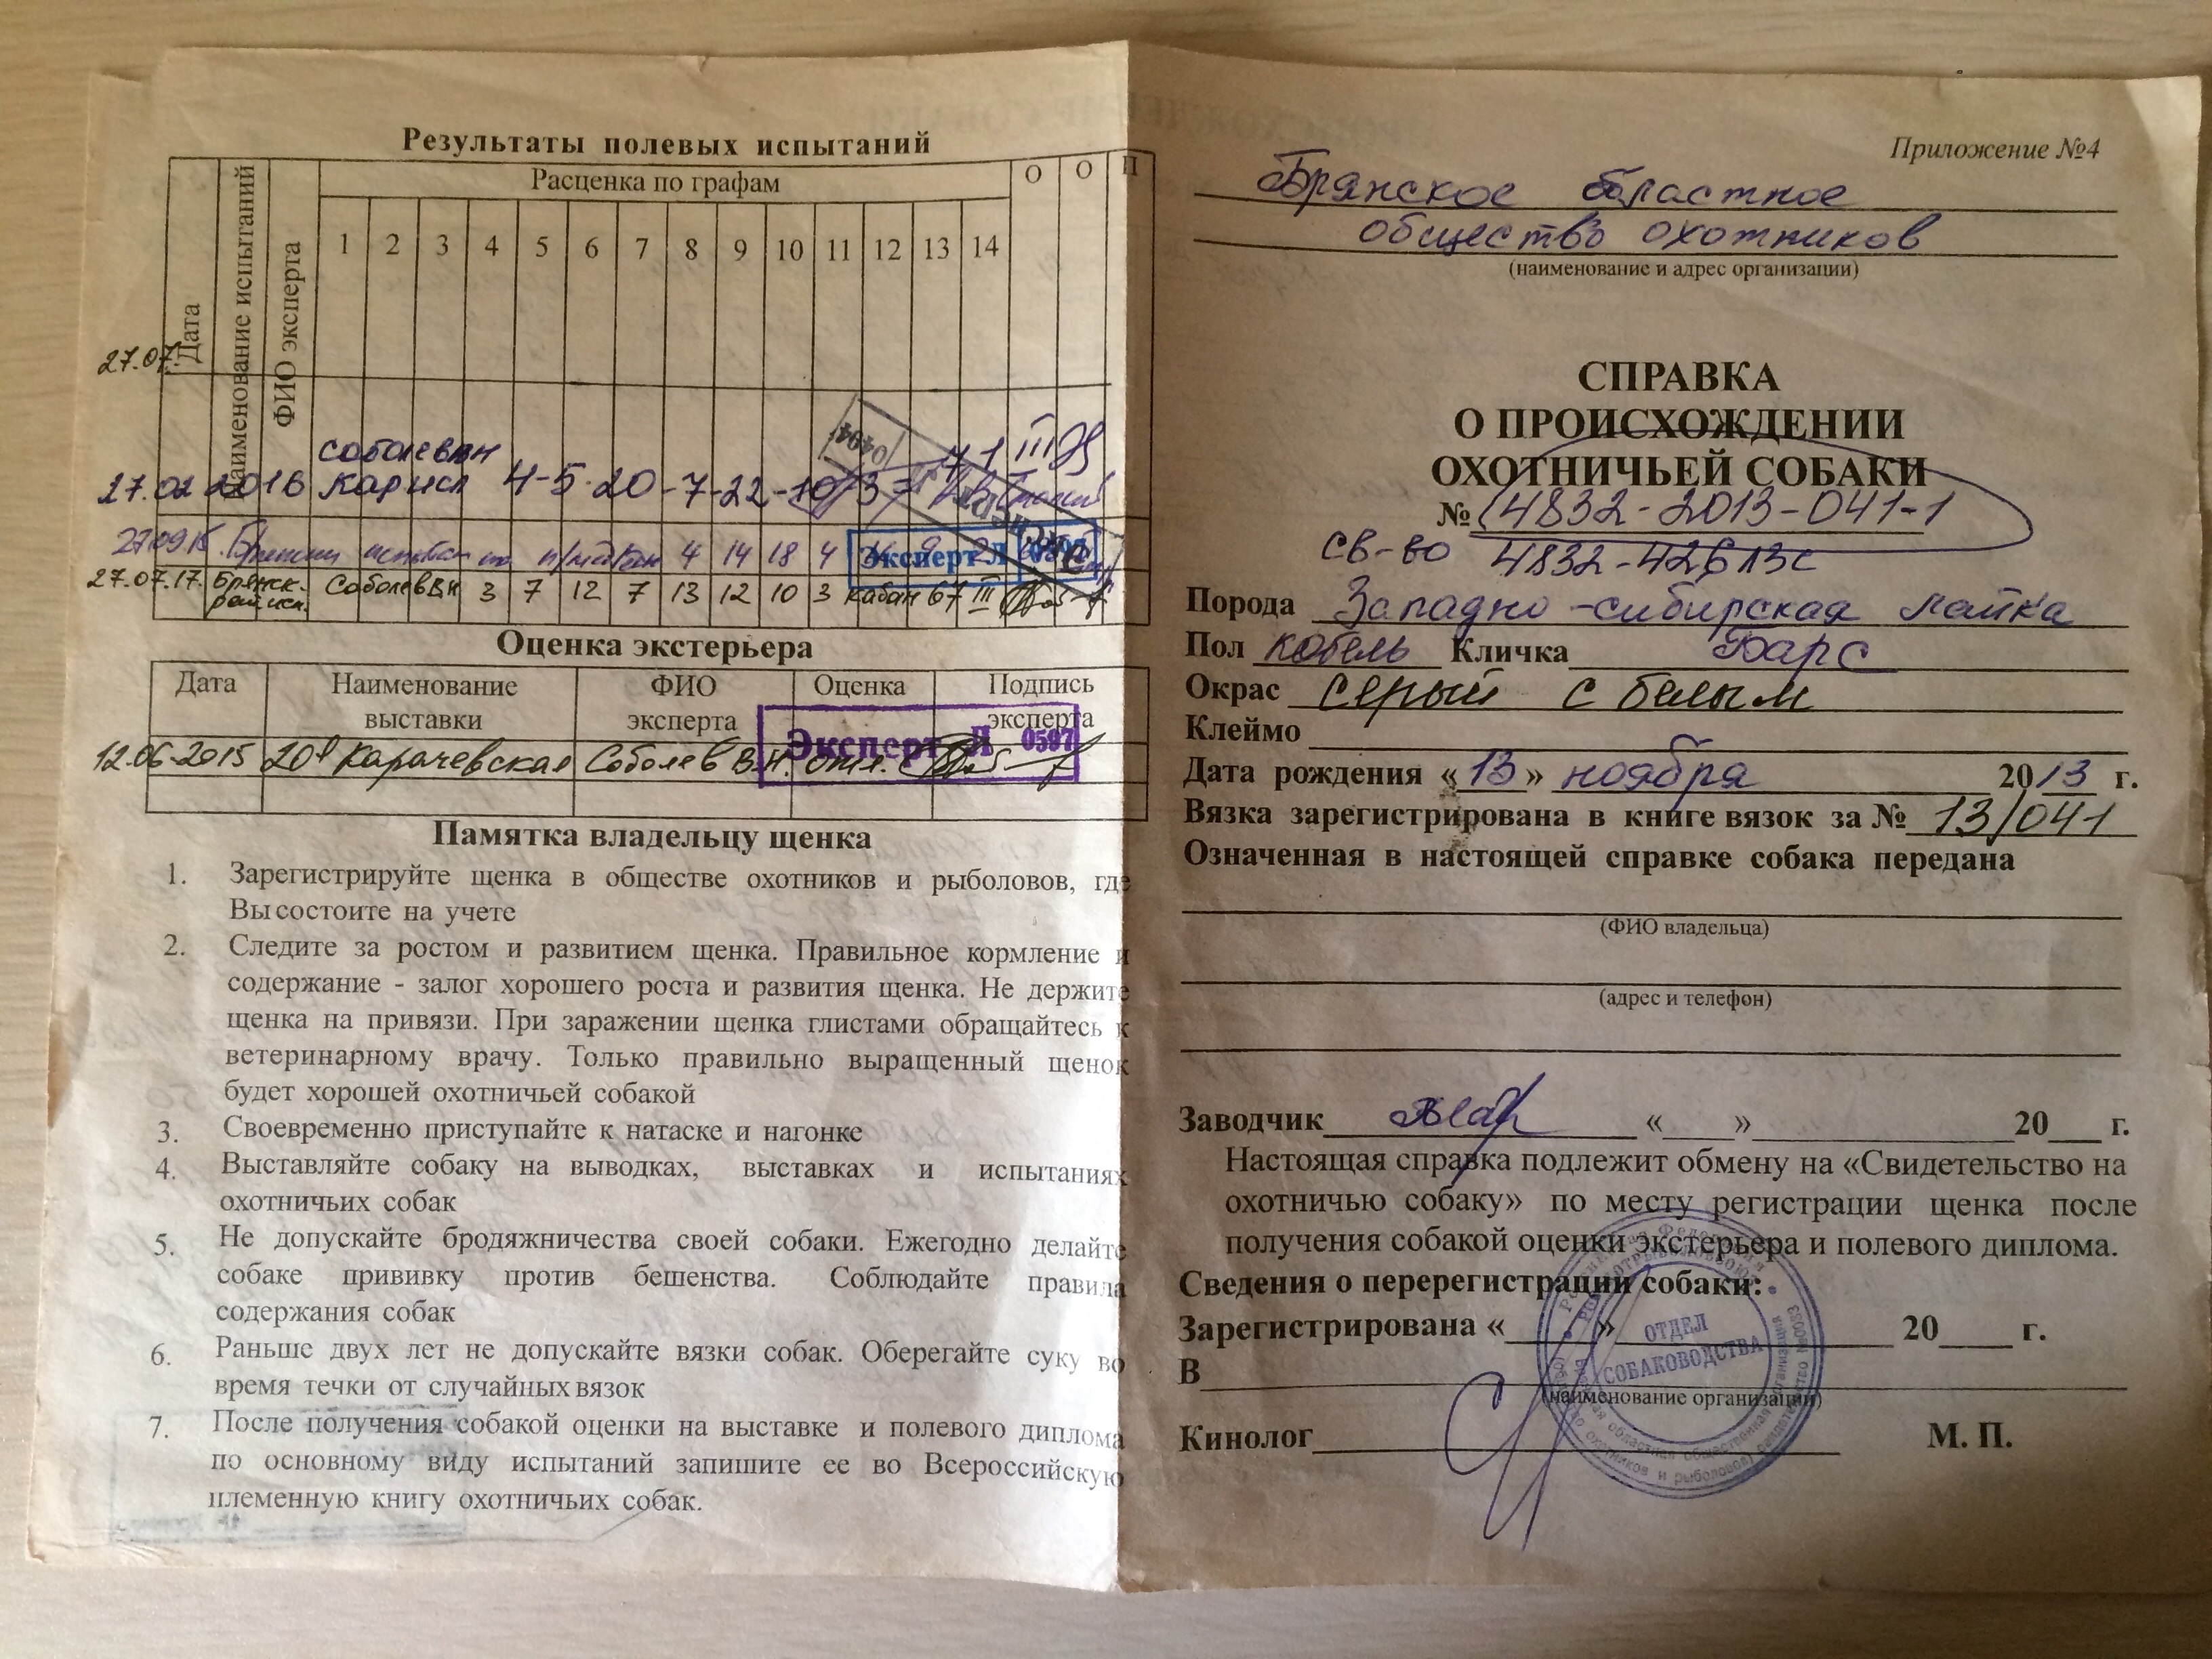 Результаты полевых испытаний
Дата
Наименование испытаний
ФИО эксперта
Расценка по графам
О О П
1 2 3 4 5 6 7 8 9 10 11 12 13 14
27.07.
Соболев ВН
27.02 2016 4-5-20-7-22-10
71 III
4 14 18 4
Эксперт
27.07.17. Брянск. Соболев В.Н 3 7 12 7 13 12 10 3 кабан 67 III
Оценка экстерьера
Дата Наименование выставки ФИО эксперта Оценка Подпись эксперта
Эксперт 0597
12.06.2015 20я Карачевская Соболев В.Н. отл.
Памятка владельцу щенка
1. Зарегистрируйте щенка в обществе охотников и рыболовов, где
Вы состоите на учете
2. Следите за ростом и развитием щенка. Правильное кормление и
содержание - залог хорошего роста и развития щенка. Не держите
щенка на привязи. При заражении щенка глистами обращайтесь к
ветеринарному врачу. Только правильно выращенный щенок
будет хорошей охотничьей собакой
3. Своевременно приступайте к натаске и нагонке
4. Выставляйте собаку на выводках, выставках и испытаниях
охотничьих собак
5. Не допускайте бродяжничества своей собаки. Ежегодно делайте
собаке прививку против бешенства. Соблюдайте правила
содержания собак
6. Раньше двух лет не допускайте вязки собак. Оберегайте суку во
время течки от случайных вязок
7. После получения собакой оценки на выставке и полевого диплома
по основному виду испытаний запишите ее во Всероссийскую
племенную книгу охотничьих собак.
Приложение №4
Брянское областное
общество охотников
(наименование и адрес организации)
СПРАВКА
О ПРОИСХОЖДЕНИИ
ОХОТНИЧЬЕЙ СОБАКИ
№ 4832-2013-041-1
св-во 4832-42613с
Порода Западно-сибирская лайка
Пол кобель Кличка Барс
Окрас серый с белым
Клеймо
Дата рождения «13» ноября 2013 г.
Вязка зарегистрирована в книге вязок за № 13/041
Означенная в настоящей справке собака передана
(ФИО владельца)
(адрес и телефон)
Заводчик «___» 20___ г.
Настоящая справка подлежит обмену на «Свидетельство на
охотничью собаку» по месту регистрации щенка после
получения собакой оценки экстерьера и полевого диплома.
Сведения о перерегистрации собаки:
Зарегистрирована «___» 20___ г.
В
(наименование организации)
Кинолог М. П.
ОТДЕЛ
СОБАКОВОДСТВА